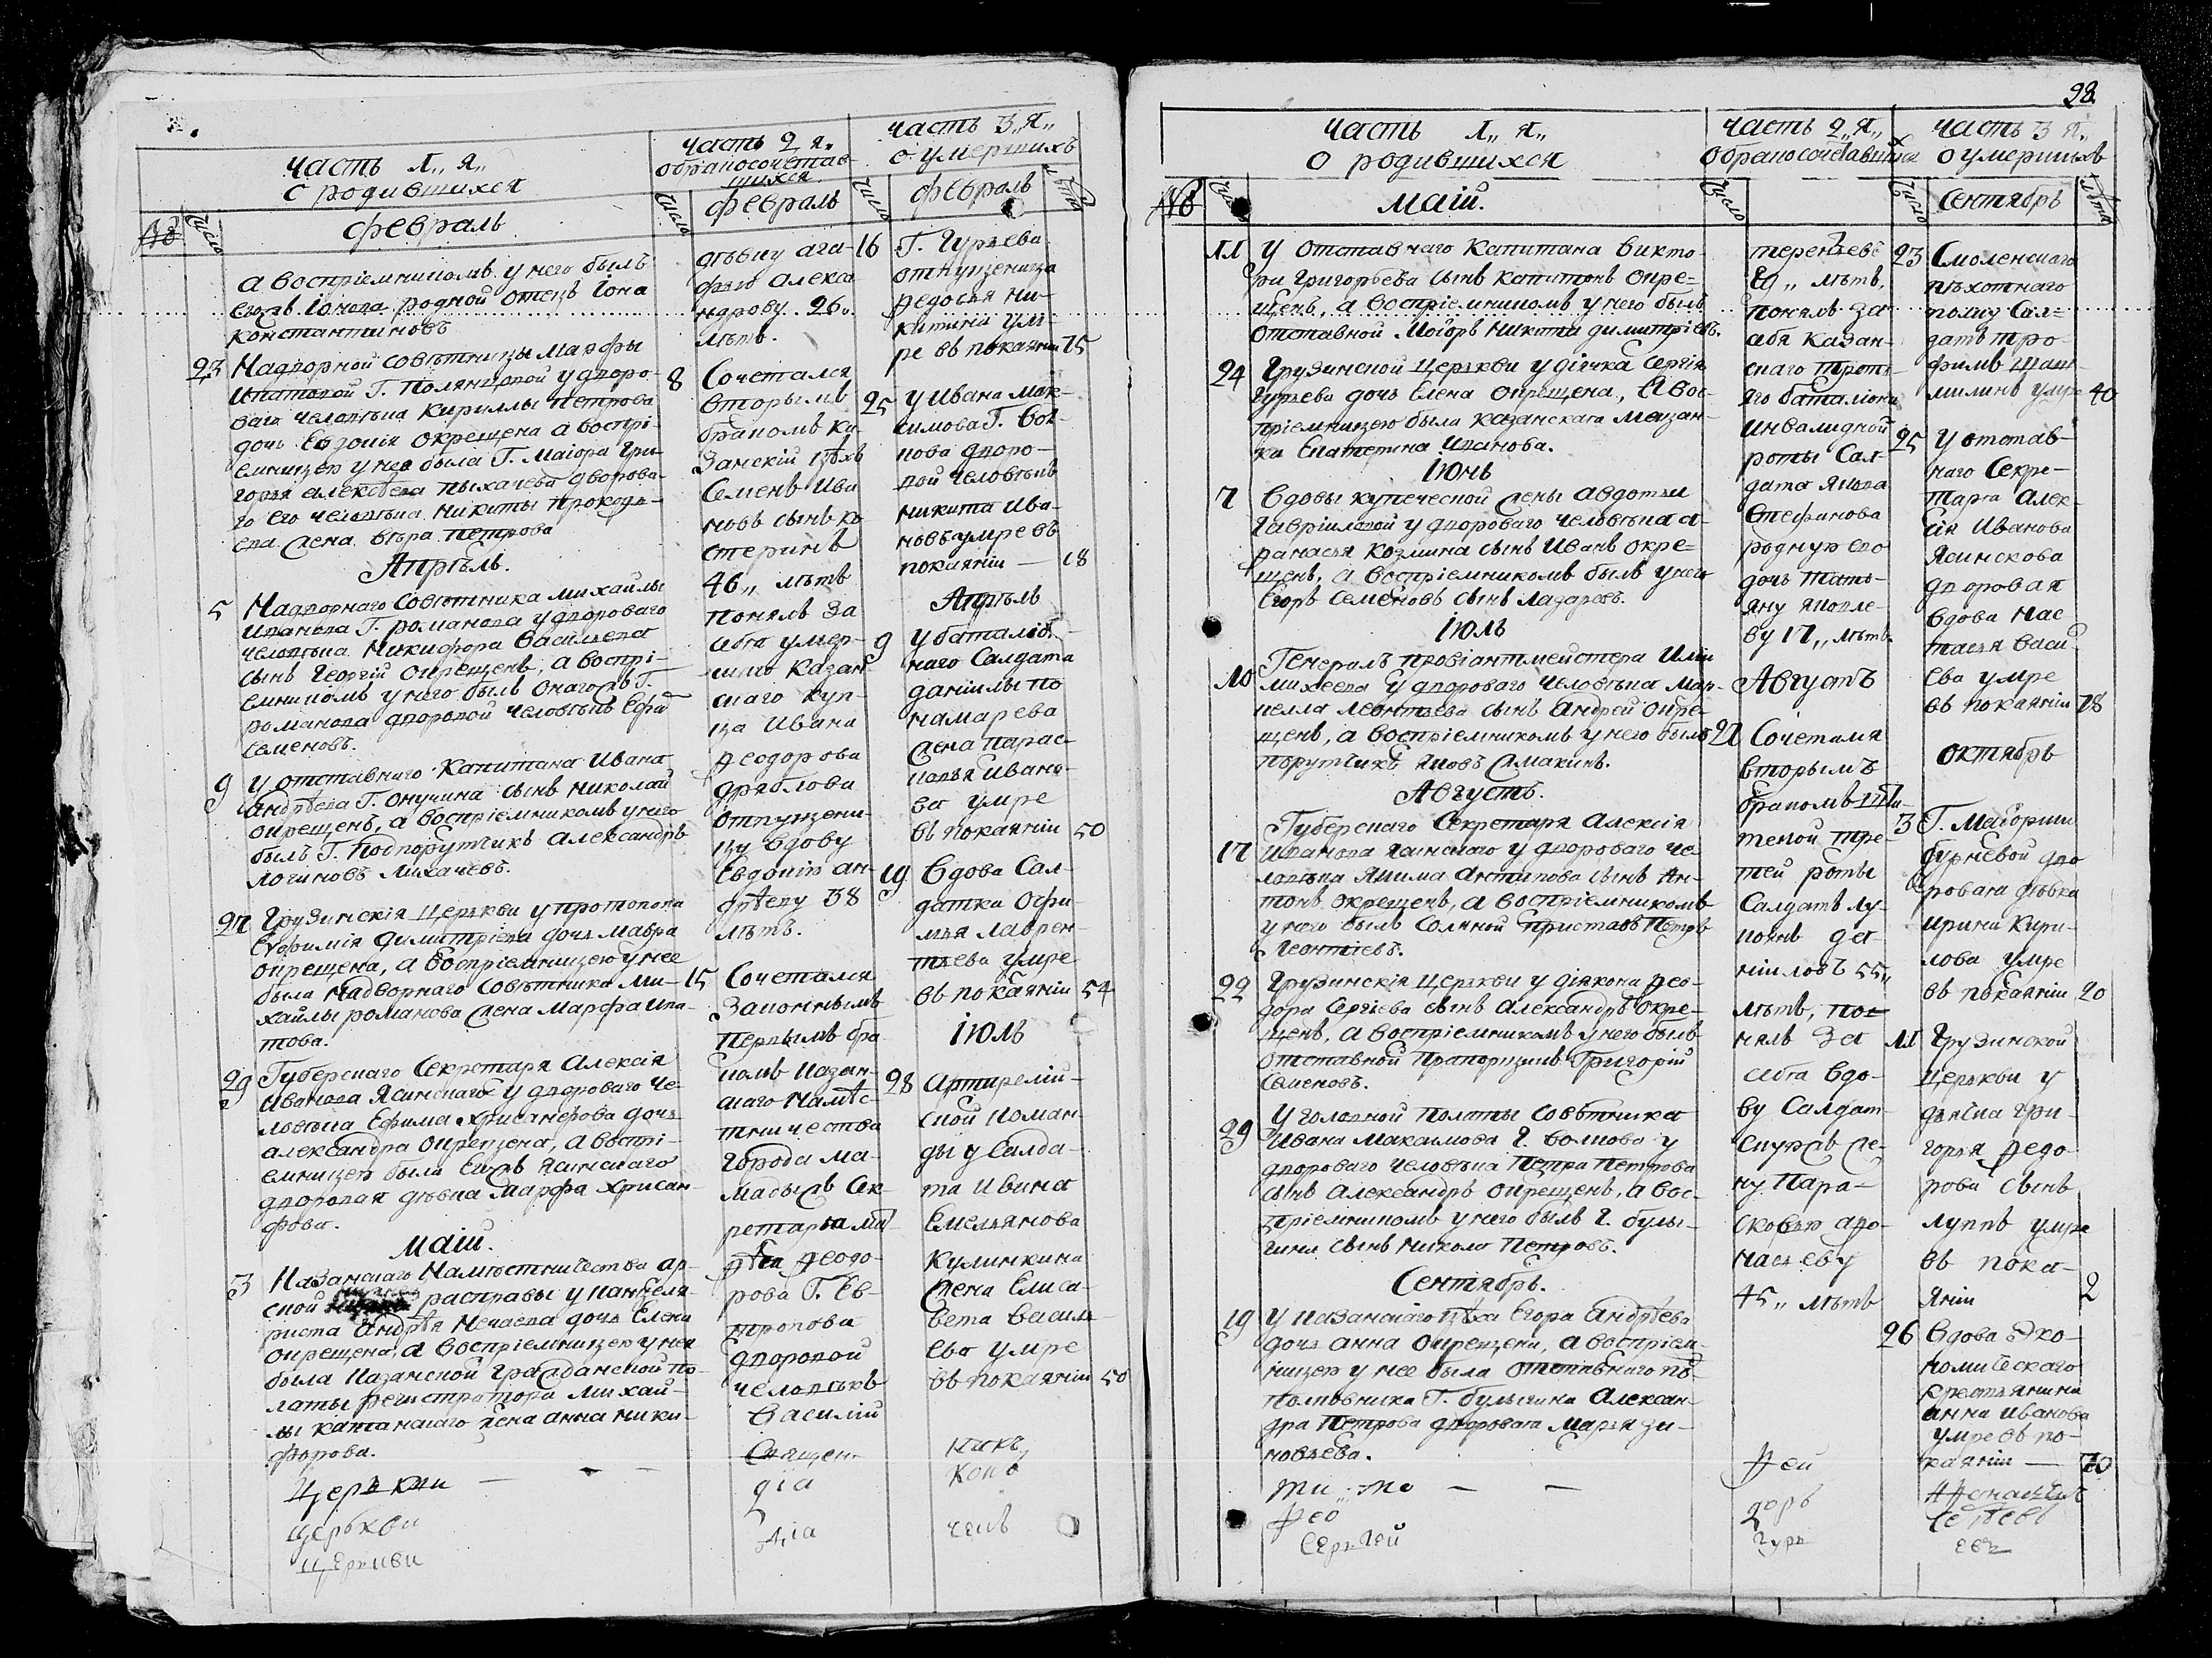 98.
часть 1,, я,,
о родившихся
№
число
февраль
а воспріемникомъ у него былъ
родной отецъ Іона
Константиновъ
23 Надворной совѣтницы Марфы
Ипатовой Г. Полянцовой у дворо-
ваго человѣка Кириллы Петрова
дочь Евдокія окрещена а воспрі-
емницею у нее была Г. Маіора Гри-
горья Алексѣева Лихачева дворова-
го его человѣка Никиты
жена Вѣра Петрова
Апрѣль.
5 Надворнаго Совѣтника Михайлы
Иванова Г. Романова у двороваго
человѣка Никифора Васильева
сынъ Георгій окрещенъ, а воспрі-
емникомъ у него былъ онаго жъ Г.
Романова дворовой человѣкъ
Семеновъ.
9 У отставнаго Капитана Ивана
Андрѣева Г. Онучина сынъ Николай
окрещенъ, а воспріемникомъ у него
былъ Г. Подпорутчикъ Александръ
Логиновъ Лихачевъ.
27 Грузинскія Церькви у протопопа
Евфимія Димитріева дочь Мавра
окрещена, а воспріемницею у нее
была Надворнаго Совѣтника Ми-
хайлы Романова жена Марфа Ипа-
това.
29 Губерскаго Секретаря Алексія
Иванова Ясинскаго у двороваго че-
ловѣка Ефима Хрисанфова дочь
Александра окрещена, а воспрі-
емницею была Ево жъ Ясинскаго
дворовая дѣвка Марфа Хрисан-
фова.
Маій.
3 Казанскаго Намѣстничества ар-
ской расправы у канцеля-
риста Андрѣя Нечаева дочь Елена
окрещена, а воспріемницею у нея
была Казанской гражданской па-
латы регистратора Михай-
лы Катанскаго жена Анна Ники-
форова.
Церькви
церькви
церькви
часть 2 я,,
о бракосочетав-
шихся
число
февраль
дѣвку Ага-
фью Алекса
ндрову 26,,
лѣтъ.
8 Сочетался
вторымъ
бракомъ ка
занскій цѣхъ
Семенъ Ива
новъ сынъ ко
стеринъ
46,, лѣтъ
понялъ за
себя умер-
шаго Казан
скаго куп-
ца Ивана
Феодорова
Дряблова
отпущени-
цу вдову
Евдокію ан-
дрѣеву 38
лѣтъ.
15 Сочетался
законнымъ
первымъ бра
комъ казан-
скаго намѣс-
тничества
города Ма-
мадыжъ Сек-
ретаря Мат
фѣя Феодо-
рова Г. Ев-
тропова
дворовой
человѣкъ
Василій
Священ-
діа
діа
часть 3,, я,,
о умершихъ
число
февраль
лѣта
16 Г. Гурьева
отпущеница
Федосья Ни-
китина уме
ре въ покаяніи 75
25 У Ивана Мак-
симова Г. Вол-
кова дворо-
вой человѣкъ
Никита Ива-
новъ умре въ
покаяніи — 18
Апрѣль
9 У баталіо-
наго Салдата
Данійлы По
намарева
жена Парас-
ковья Ивано-
ва умре
въ покаяніи 50
19 Вдова Сал-
датка Офи-
мья Лаврен-
тьева умре
въ покаяніи 54
Іюль
28 Артирелій-
ской коман-
ды у Салда-
та Ивана
Емельянова
Кулинкина
жена Елиса-
вета Василь
ева умре
въ покаяніи 50
никъ
конъ
часть 1,, я,,
о родившихся
№
число
маій.
11 У отставнаго Капитана Викто-
ра Григорьева сынъ Капитонъ окре-
щенъ, а воспріемникомъ у него былъ
отставной Маіоръ Никита Димитріевъ.
24 Грузинской Церькви у дьячка Сергія
Гурьева дочь Елена окрещена, а вос-
пріемницею была казанскаго мещан-
ка Екатерина Иванова.
Іюнь
7 Вдовы купеческой жены Авдотьи
Гавриловой у двороваго человѣка А-
фанасья Козмина сынъ Иванъ окре-
щенъ, а воспріемникомъ былъ у него
Егоръ Семеновъ сынъ Лазаревъ.
Іюль
10 Генералъ провіантмейстера Ильи
Михеева у двороваго человѣка Мар-
келла Леонтьева сынъ Андрей окре-
щенъ, а воспріемникомъ у него былъ
порутчикъ Яковъ Самакинъ.
Августъ.
17 Губерскаго Секретаря Алексія
Иванова Ясинскаго у двороваго че-
ловѣка Якима Антипова сынъ Ан-
тонъ окрещенъ, а воспріемникомъ
у него былъ Соляной приставъ Петръ
Леонтіевъ.
22 Грузинскія Церькви у діякона Фео-
дора Сергіева сынъ Александръ окре-
щенъ, а воспріемникомъ у него былъ
отставной Прапорщикъ Григорій
Семеновъ.
29 Уголовной Полаты совѣтника
Ивана Макасимова Г. Волкова у
двороваго человѣка Петра Петрова
сынъ Александръ окрещенъ, а вос-
пріемникомъ у него былъ Г. Булы-
гина сынъ Никола Петровъ.
Сентябрь.
19 У казанскаго цѣха Егора Андрѣева
дочь Анна окрещена, а воспріем-
ницею у нее была отставнаго по-
полковника Г. Булыгина Алексан-
дра Петрова дворовая Марья Зи-
новьева.
Ти-мо
Фео
Сергѣй
часть 2,, я,,
о бракосочетавшихся
число
терентьевъ
19,, лѣтъ,
понялъ за
себя Казан-
скаго треть-
яго баталіона
инвалидной
роты Сал-
дата Якова
Стефанова
родную ево
дочь Тать-
яну Яковле-
ву 17,, лѣтъ
Августъ
22 Сочетался
вторымъ
бракомъ
тской тре-
тей роты
Салдатъ Лу-
кіянъ Да-
ниловъ 55,,
лѣтъ, по-
нялъ за
себя вдо-
ву Салдат-
скую же-
ну Пара-
сковью Афо-
насьеву
45,, лѣтъ
Фей
доръ
Гурь
часть 3 я,,
о умершихъ
число
Сентябрь
лѣта
23 Смоленскаго
пѣхотнаго
полку Сал-
датъ Тро-
фимъ
умре 40
25 У отстав-
наго Секре-
таря Алек-
сія Иванова
Ясинскова
дворовая
вдова Нас
тасья Васи
ева умре
въ покаяніи 78
Октябрь
3 Г. Маіорши
Бурнѣвой дво
ровая дѣвка
Ирина Кири-
лова умре
въ покаяніи 20
11 Грузинской
Церькви у
дьячка Гри-
горья Федо-
рова сынъ
Луппъ умре
въ пока-
яніи 2
26 Вдова Эко-
номическаго
крестьянина
Анна Иванова
умре въ по-
каяніи — 70
евъ